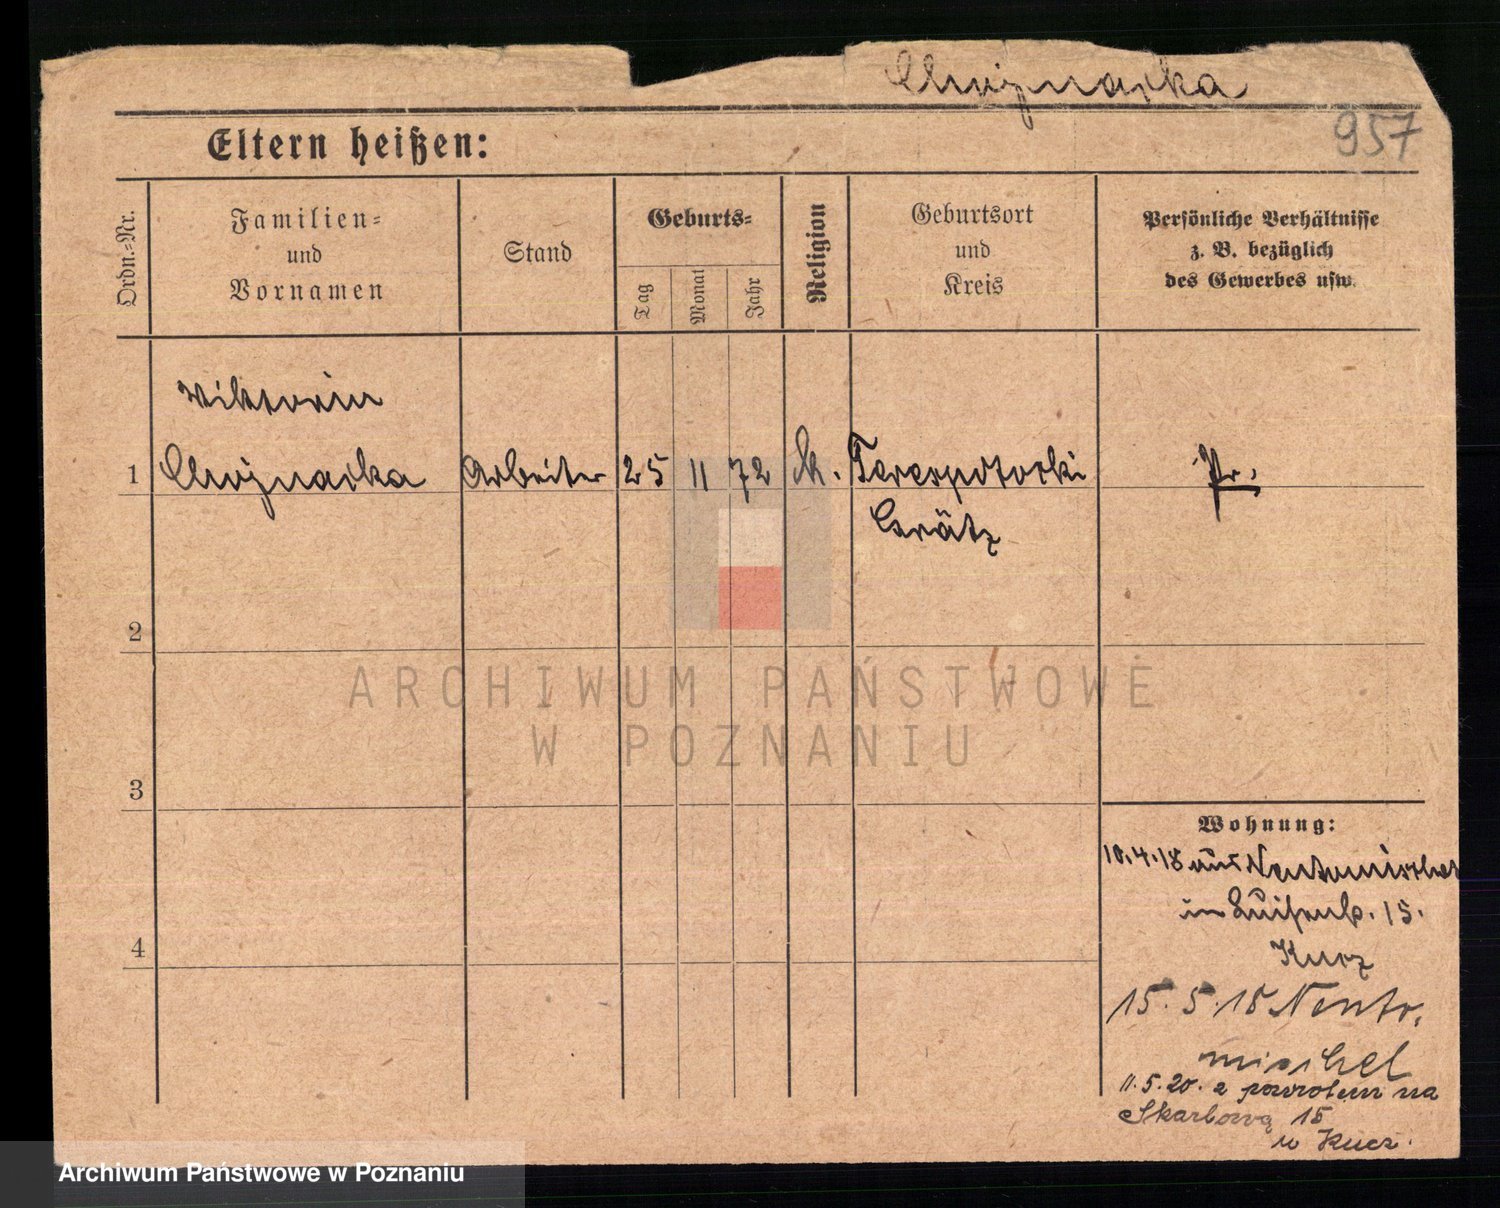 Chojnacka
957
Eltern heißen:
Ordn.-Nr.
Familien-
und
Vornamen
Stand
Geburts-
Tag
Monat
Jahr
Religion
Geburtsort
und
Kreis
Persönliche Verhältnisse
z. B. bezüglich
des Gewerbes usw.
Viktorin
1 Chojnacka Arbeiter 25 11 72 k. Terespotocki Pr.
Grätz
2
3
4
Wohnung:
10.4.18 aus Neutomischel
in Luisenstr. 15.
Kucz
15.5.18 Neuto-
mischel
11.5.20. z powrotem na
Skarbową 15
u Kucz.
ARCHIWUM PAŃSTWOWE
W POZNANIU
Archiwum Państwowe w Poznaniu